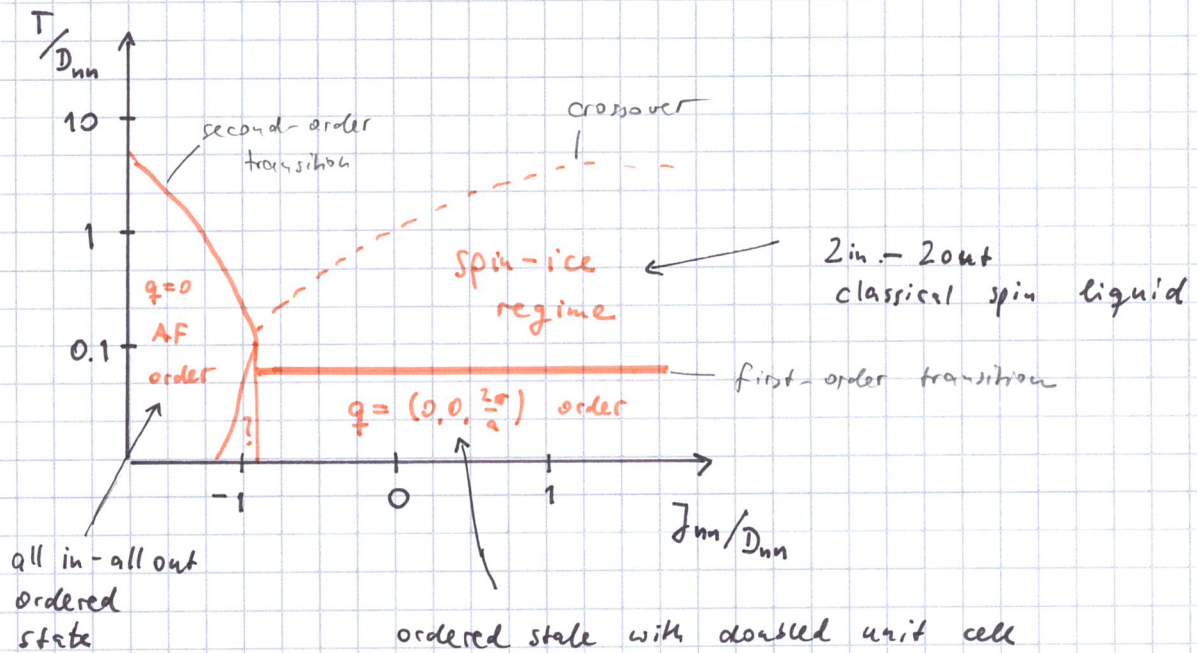 T/D_nn
10
second-order
transition
crossover
1
spin-ice
regime
2in - 2out
classical spin liquid
q=0
AF
order
0.1
first-order transition
q = (0,0,2π/a) order
?
-1
0
1
J_nn/D_nn
all in-all out
ordered
state
ordered state with doubled unit cell